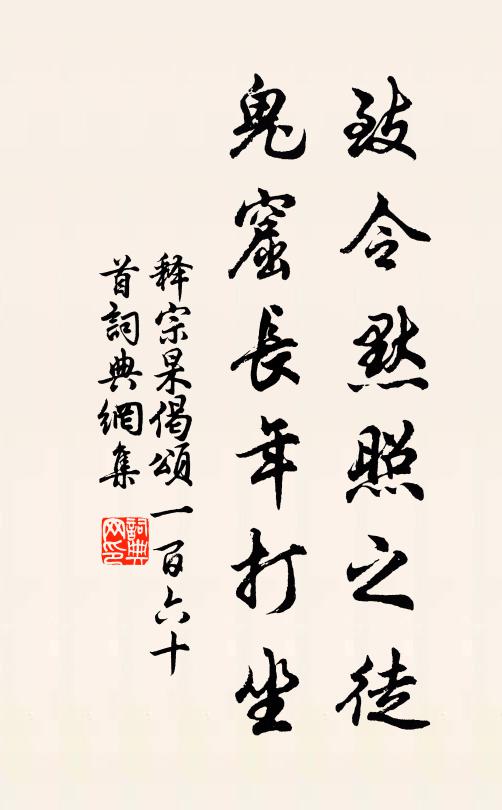 致令默照之徒
鬼窟長年打坐
释宗杲偈頌一百六十
首詞典網集
詞典网印